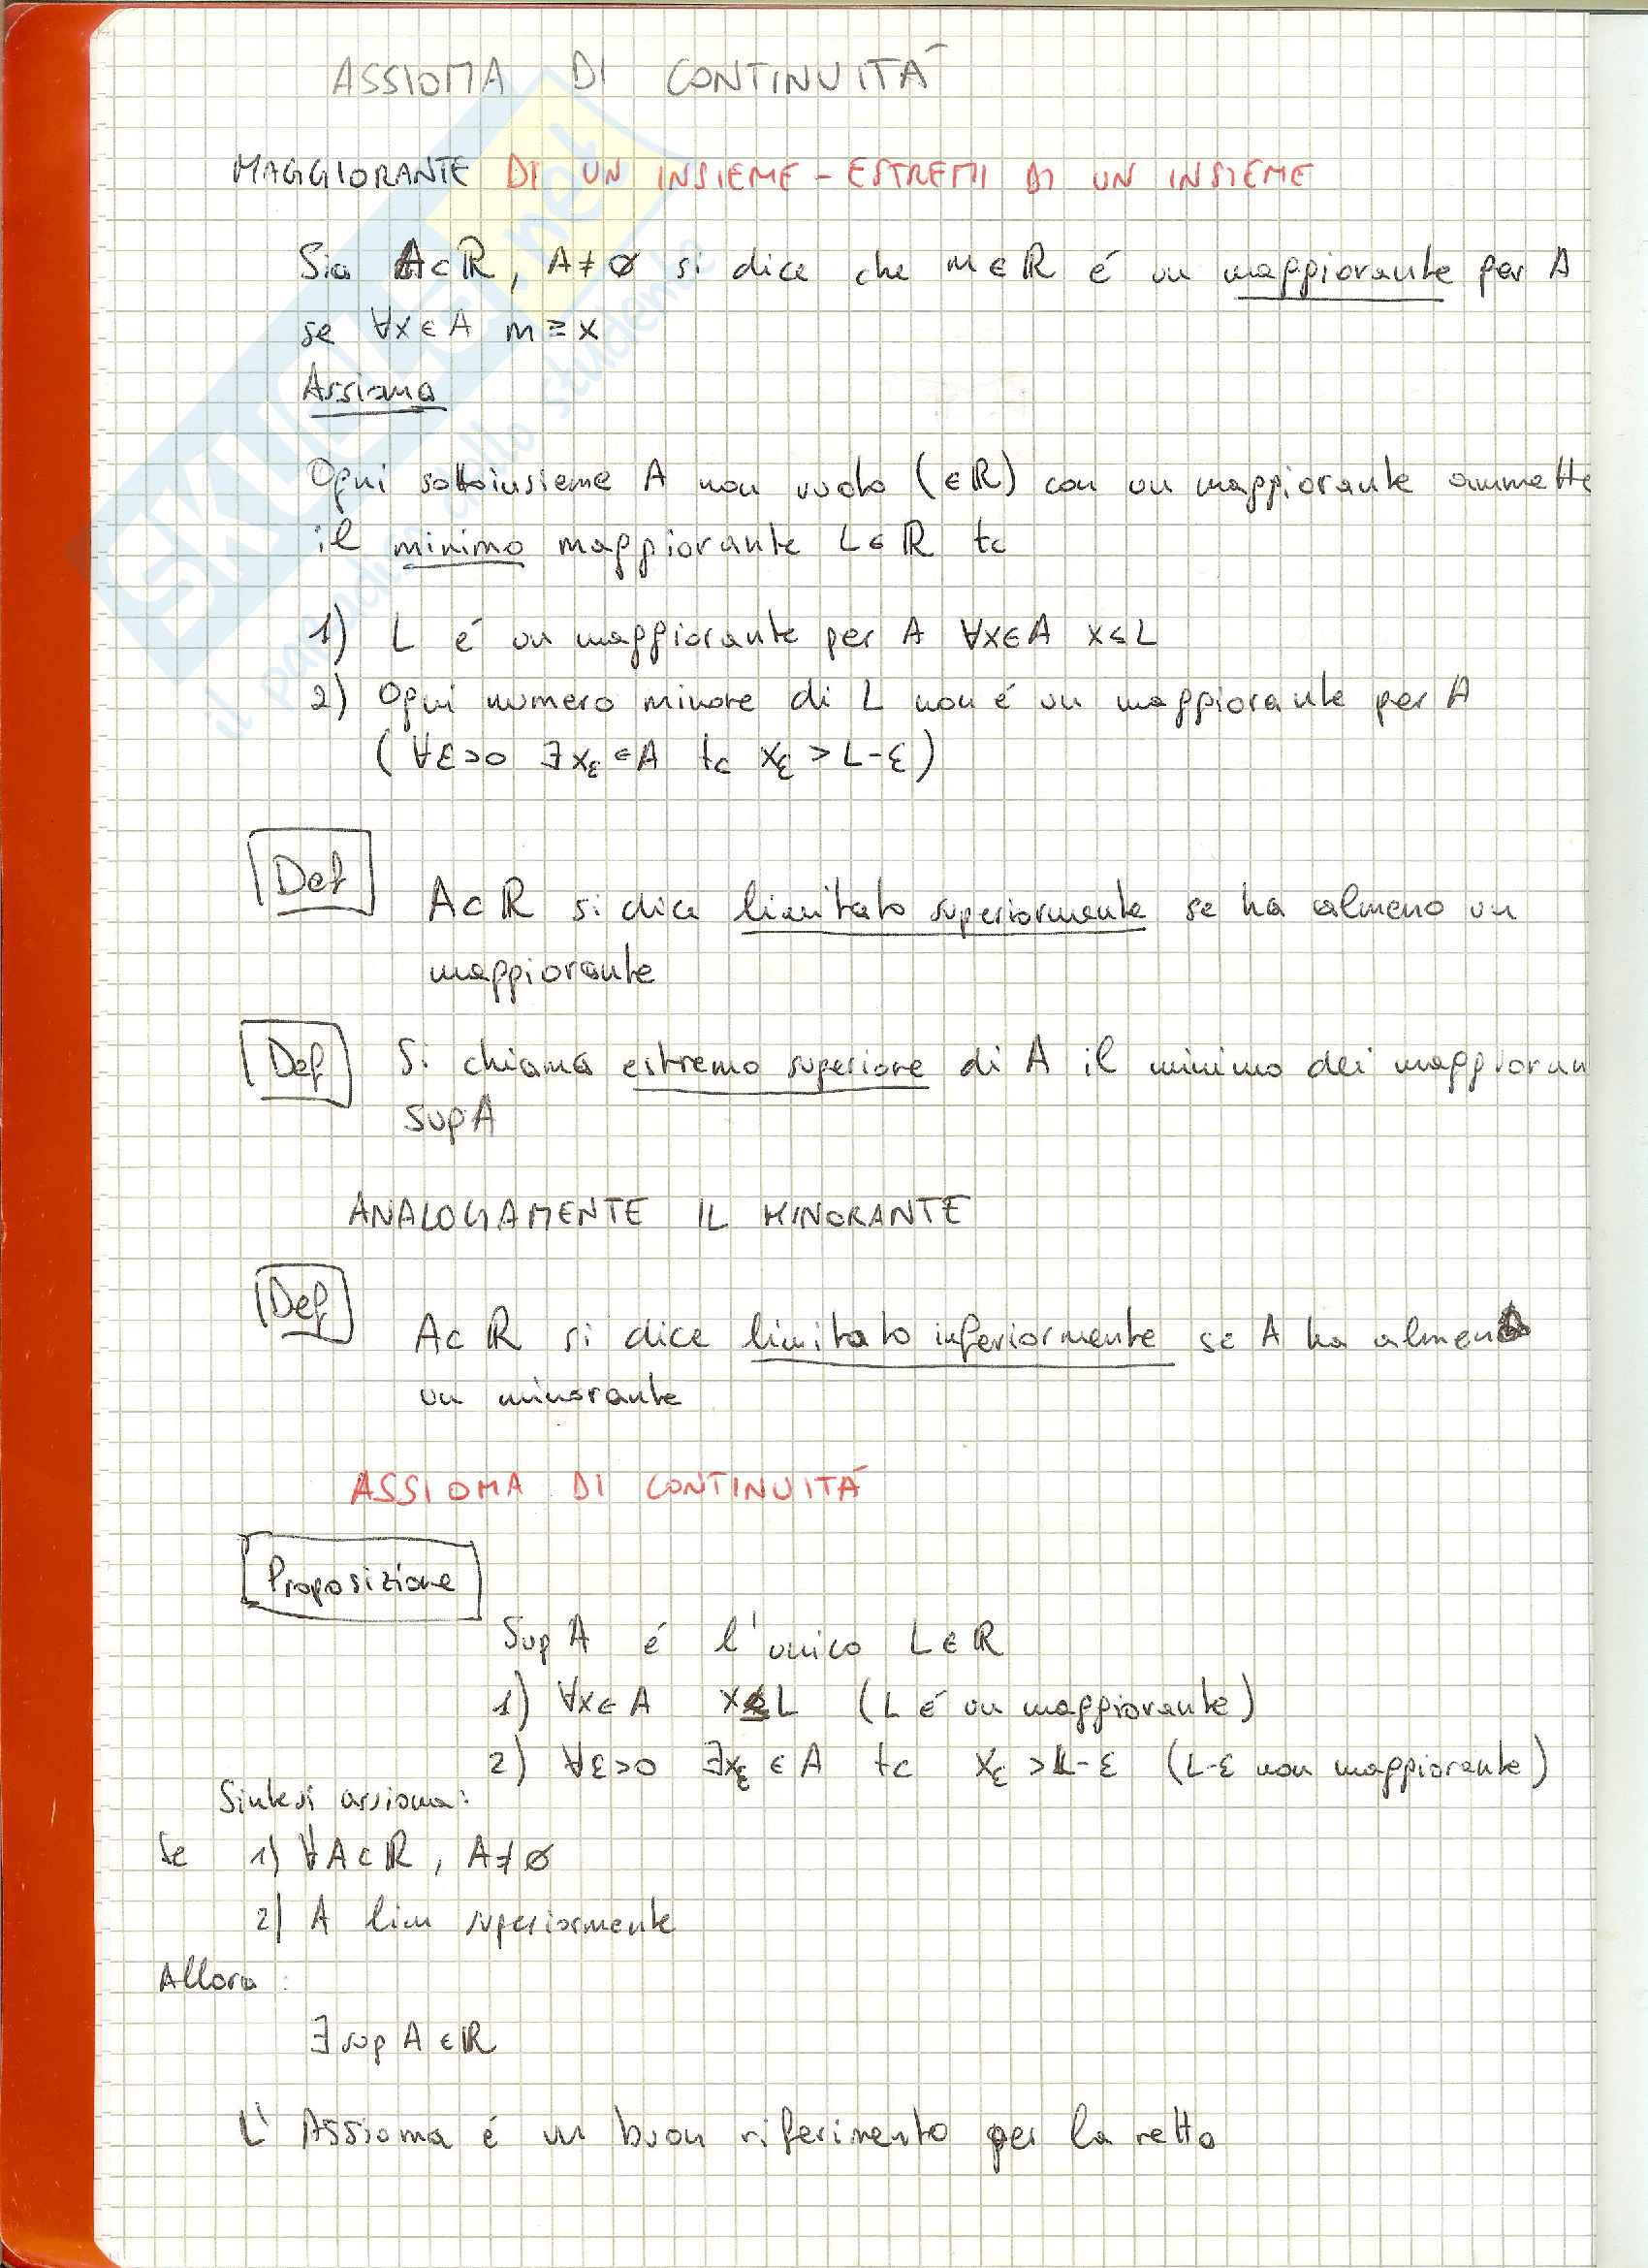 ASSIOMA DI CONTINUITÁ
MAGGIORANTE DI UN INSIEME - ESTREMI DI UN INSIEME
Sia A⊂ℝ, A≠∅ si dice che m∈ℝ é un maggiorante per A
se ∀x∈A m≥x
Assioma
Ogni sottoinsieme A non vuoto (∈ℝ) con un maggiorante ammette
il minimo maggiorante L∈ℝ tc
1) L é un maggiorante per A ∀x∈A x≤L
2) Ogni numero minore di L non é un maggiorante per A
(∀ε>0 ∃xε∈A tc xε>L-ε)
Def
A⊂ℝ si dice limitato superiormente se ha almeno un
maggiorante
Def Si chiama estremo superiore di A il minimo dei maggioran
SupA
ANALOGAMENTE IL MINORANTE
Def
A⊂ℝ si dice limitato inferiormente se A ha almeno
un minorante
ASSIOMA DI CONTINUITÁ
Proposizione
SupA é l'unico L∈ℝ
1) ∀x∈A x≤L (L é un maggiorante)
2) ∀ε>0 ∃xε∈A tc xε>L-ε (L-ε non maggiorante)
Sintesi assioma:
Se 1) ∀A⊂ℝ, A≠∅
2) A lim superiormente
Allora:
∃ sup A∈ℝ
L' Assioma é un buon riferimento per la retta
SKUOLA.net
il paradiso dello studente